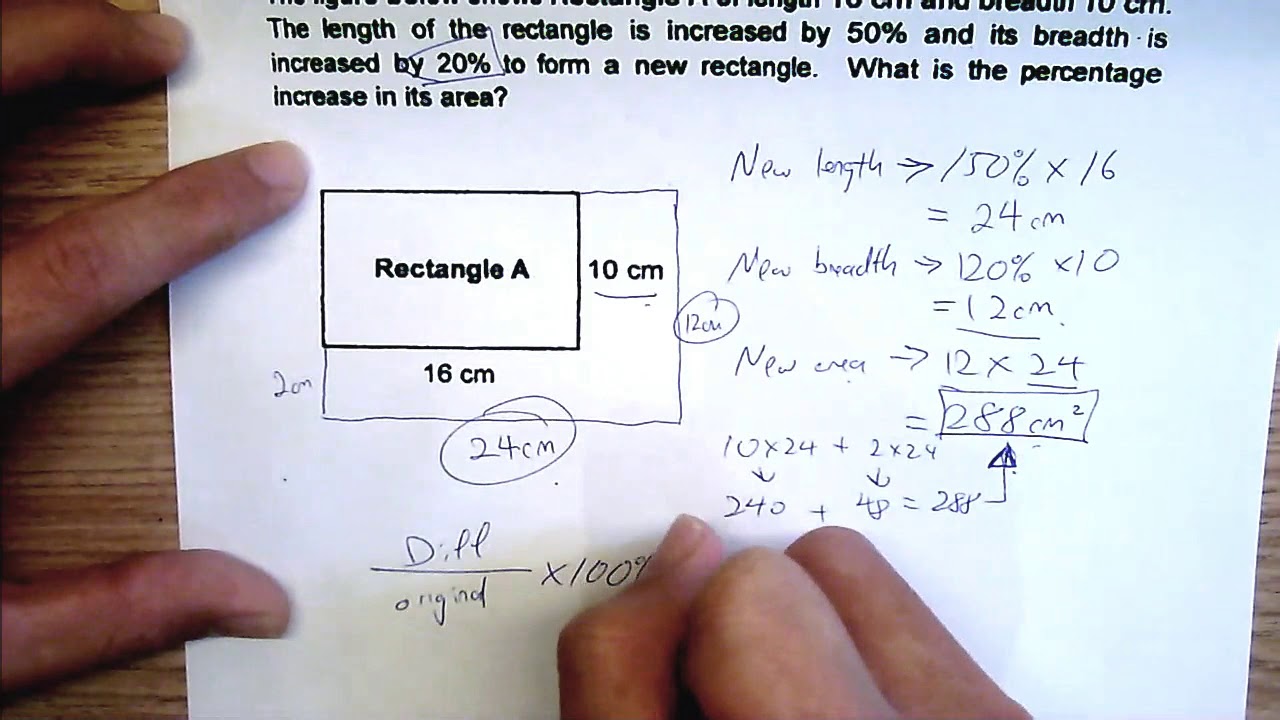 The figure below shows Rectangle A of length 16 cm and breadth 10 cm.
The length of the rectangle is increased by 50% and its breadth is
increased by 20% to form a new rectangle. What is the percentage
increase in its area?
New length → 150% × 16
= 24cm
Rectangle A
10 cm
New breadth → 120% ×10
= 12cm.
12cm
16 cm
2cm
24cm
New area → 12 × 24
= 288cm²
10×24 + 2×24
240 + 48 = 288
Diff
original
×100%